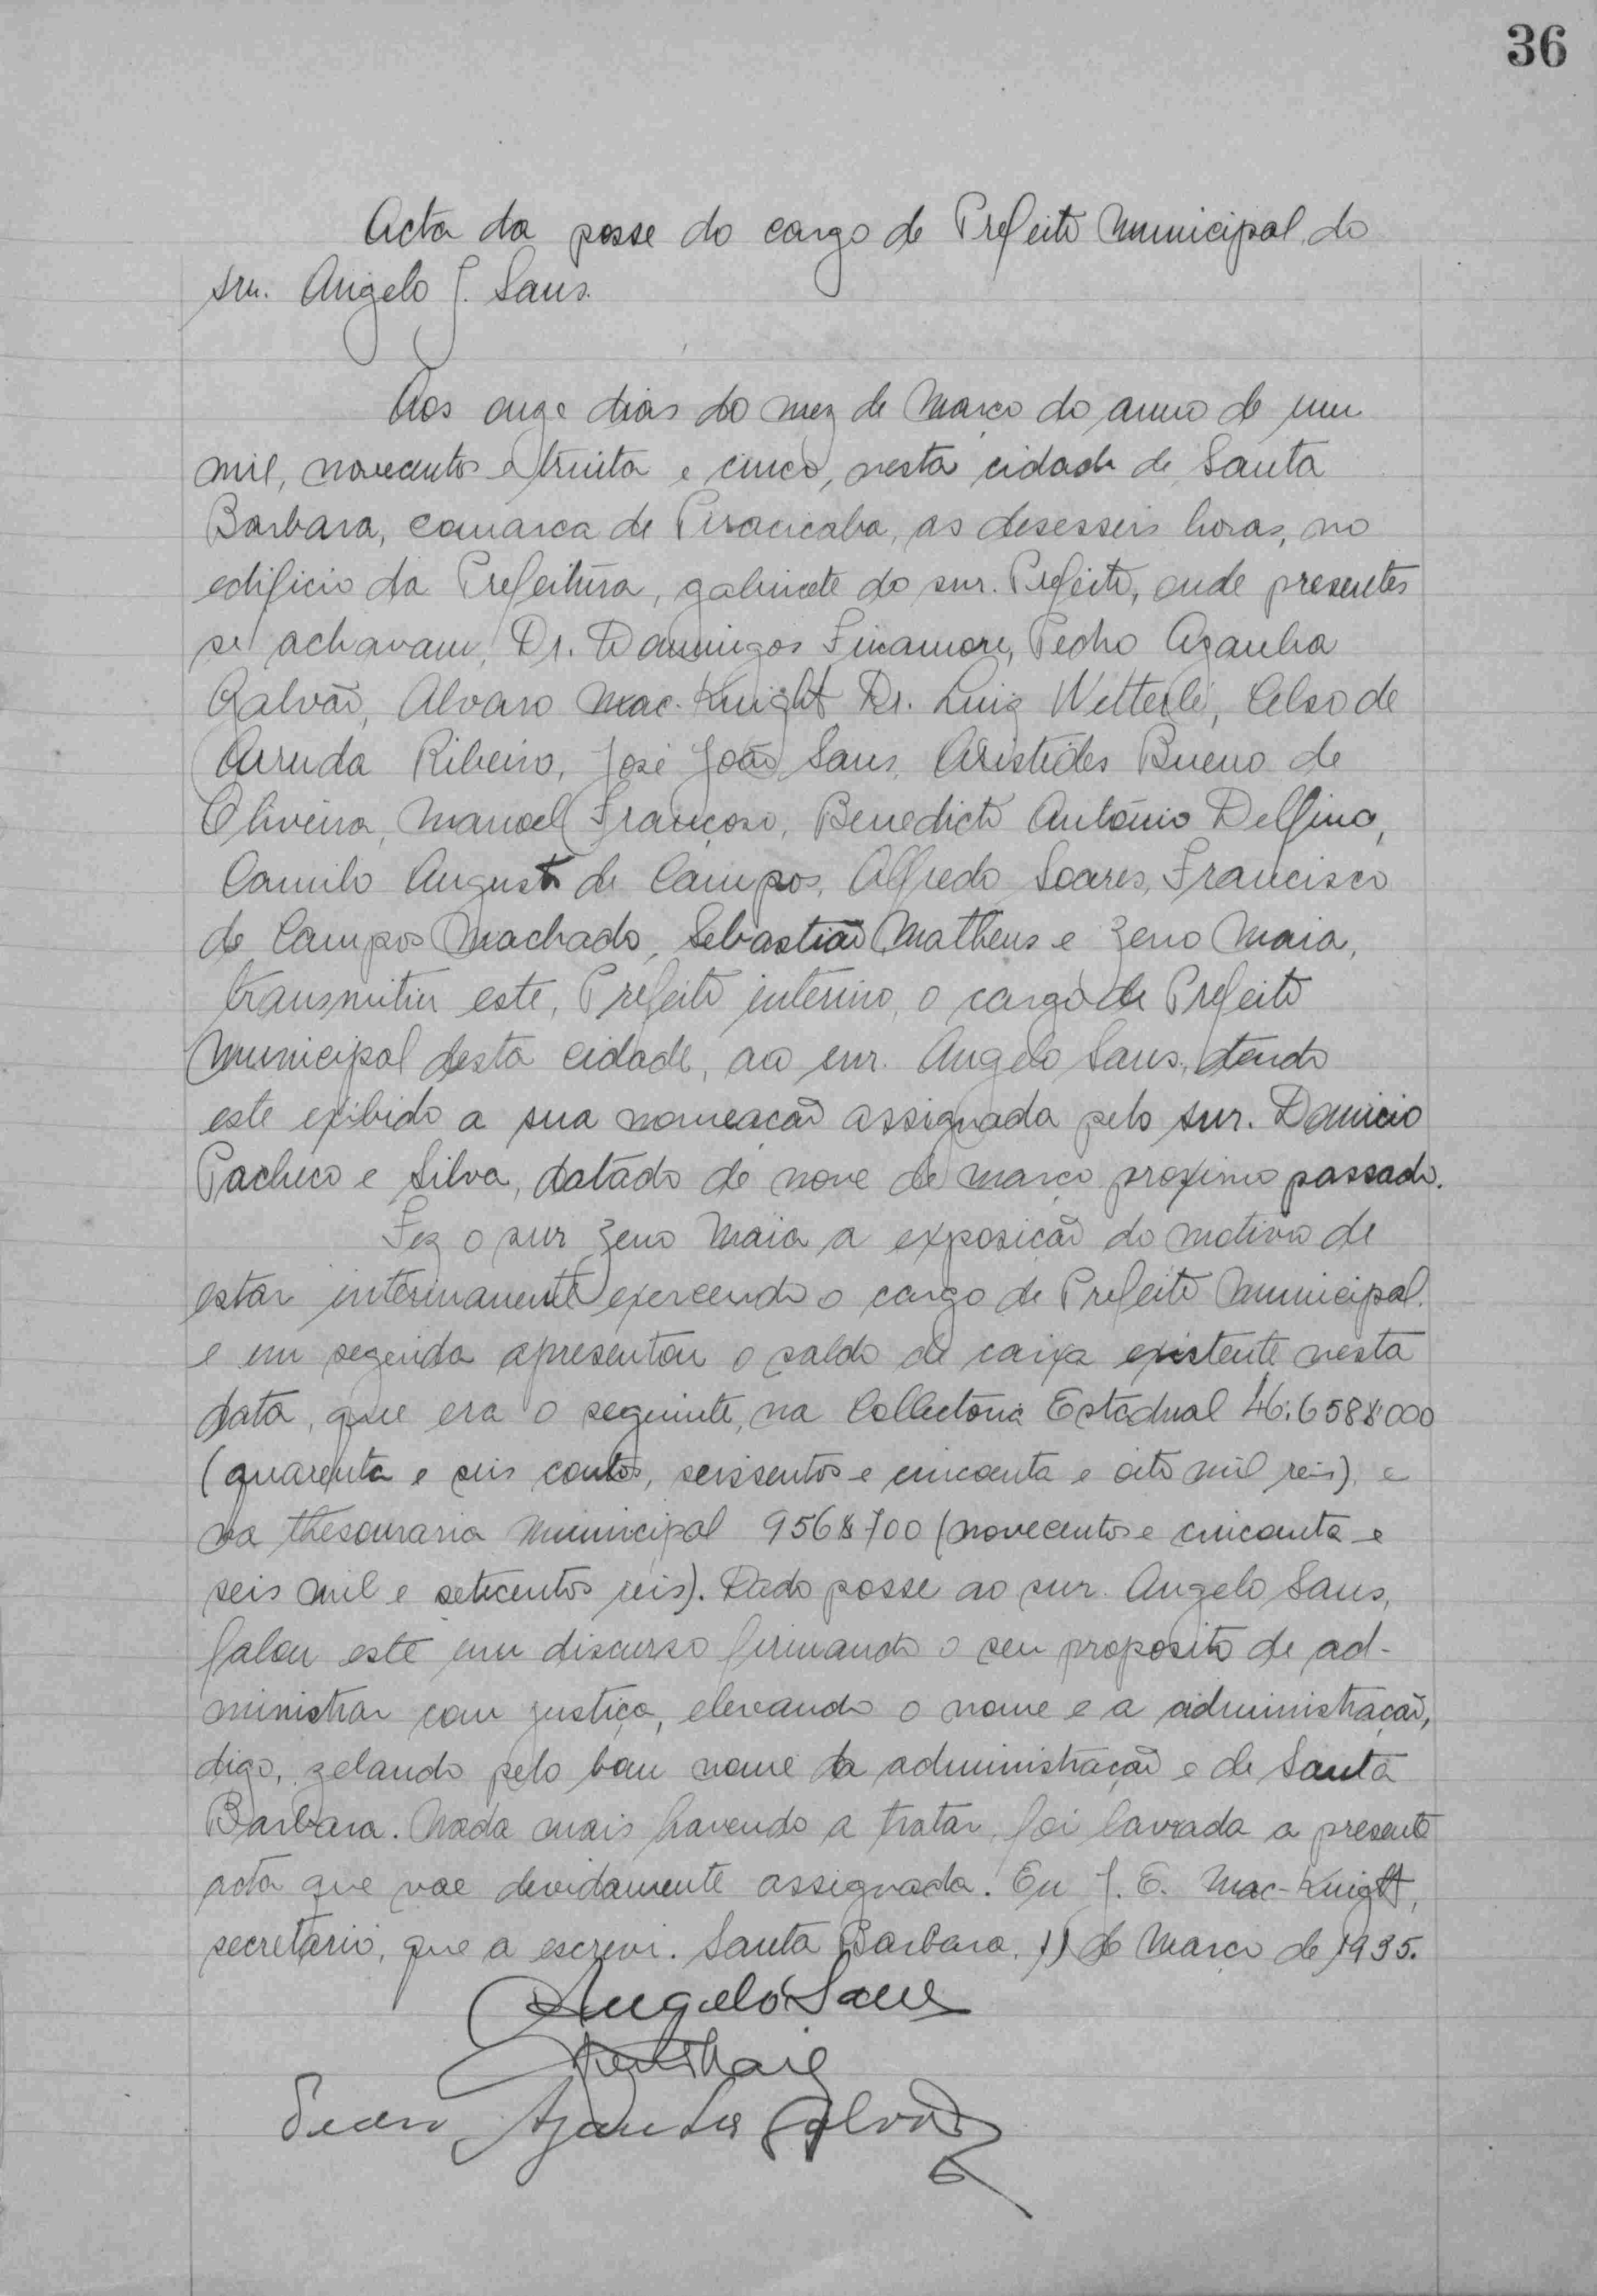 36
Acta da posse do cargo de Prefeito Municipal do
snr. Angelo J. Sans.
Aos onze dias do mez de Março do anno de um
mil, novecentos e trinta e cinco, nesta cidade de Santa
Barbara, comarca de Piracicaba, as desesseis horas, no
edificio da Prefeitura, gabinete do snr. Prefeito, onde presentes
se achavam, Dr. Domingos Finamore, Pedro Azanha
Galvão, Alvaro Mac-Knight, Dr. Luiz Wetterlé, Celso de
Arruda Ribeiro, José João Sans, Aristides Bueno de
Oliveira, Manoel Françoso, Benedicto António Delfino,
Camilo Augusto de Campos, Alfredo Soares, Francisco
de Campos Machado, Sebastião Matheus e Zeno Maia,
transmitiu este, Prefeito interino, o cargo de Prefeito
Municipal desta cidade, ao snr. Angelo Sans, tendo
este exibido a sua nomeação assignada pelo snr. Danicio
Pacheco e Silva, datado de nove de março proximo passado.
Fez o snr Zeno Maia a exposição do motivo de
estar interinamente exercendo o cargo de Prefeito Municipal.
e em segenida apresentou o saldo de caixa existente nesta
data, que era o seguinte, na Collectoria Estadual 46:658$000
(quarenta e seis contos, seissentos e cincoenta e oito mil reis), e
na thesouraria Municipal 956$700 (novecentos e cincoenta e
seis mil e setecentos reis). Dado posse ao snr. Angelo Sans,
falou este em discurso firmando o seu proposito de ad-
ministrar com justiça, elevando o nome e a administração,
digo, zelando pelo bom nome da administração e de Santa
Barbara. Nada mais havendo a tratar, foi lavrada a presente
acta que vae devidamente assignada. Eu J. E. Mac-Knight,
secretário, que a escrevi. Santa Barbara, 11 de Março de 1935.
Angelo Sans
Zeno Maia
Pedro Azanha Galvão